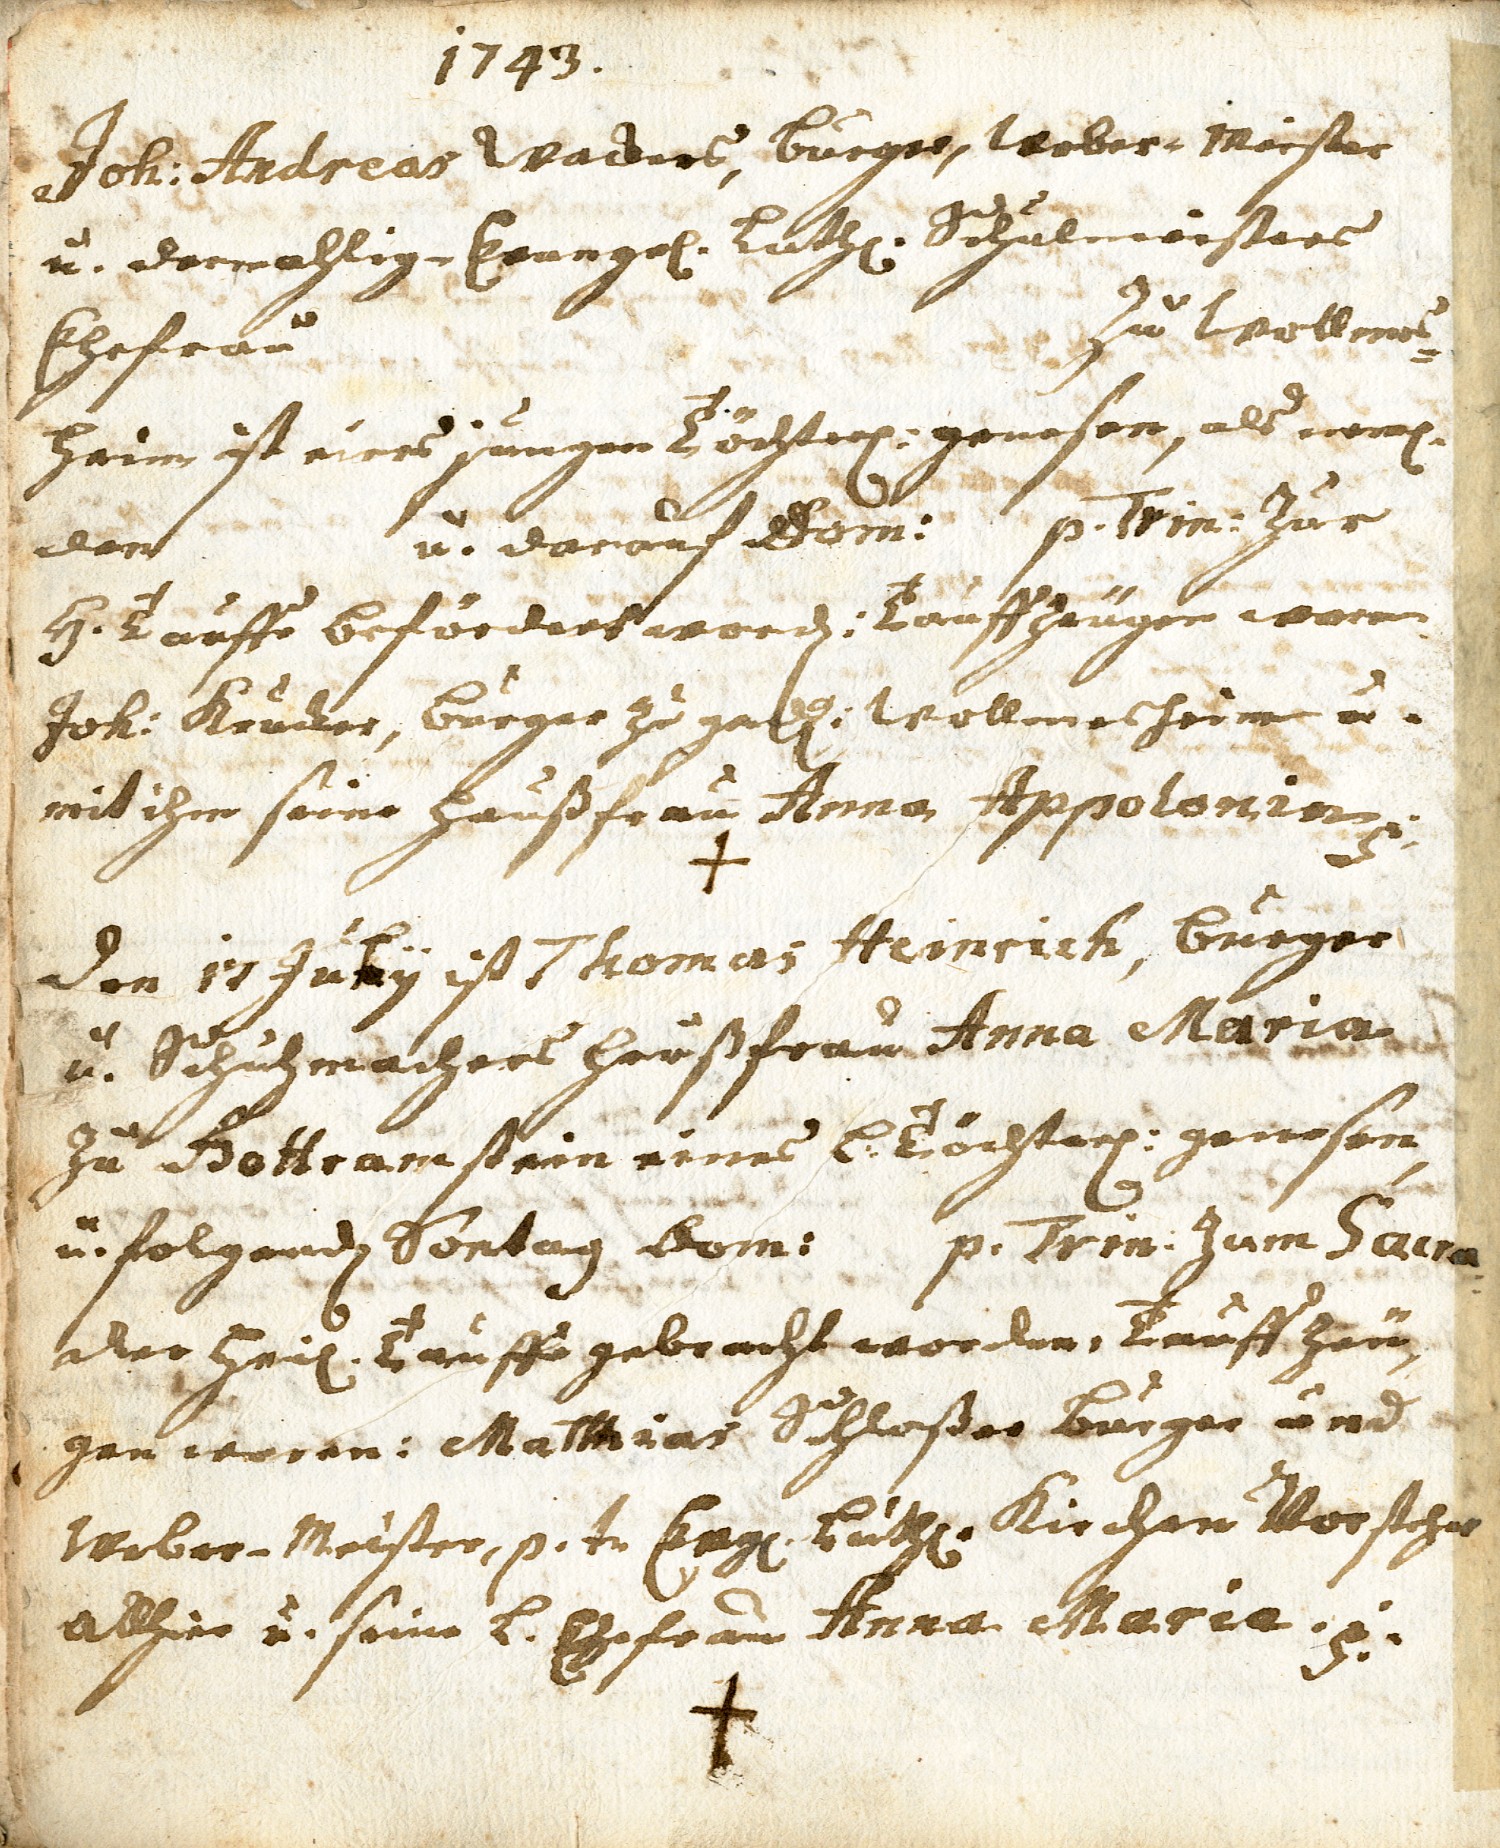 1743.
Joh: Andreas Waders, burger, Weber-Meister
u. dermahlig-Evangel. Luth. Schulmeisters
Ehefrau zu Wollmes=
heim ist eines jungen Töchterl: genesen, als neml.
den u. darauf Dom: p. Trin: zur
H. Tauffe befördert word: Tauffzeugen waren
Joh: Kruker, burger zu ged: Wollmesheim u.
mit ihm seine haußfrau Anna Appolonia
+
den 17 July ist Thomas Heinrich, burger
u. Schuhmachers haußfrau Anna Maria
zu Bottramstein eines l. Töchterl: genesen,
u. folgend Sontag Dom: p. Trin: zum Sacra
der heil. Tauffe gebracht worden, Tauffzeu,
gen waren: Matthias Schloßer burger und
Weber-Meister, p. t. Evgl. Luth. Kirchen Vorsteher
allhier u. seine l. Ehefrau Anna Maria
+